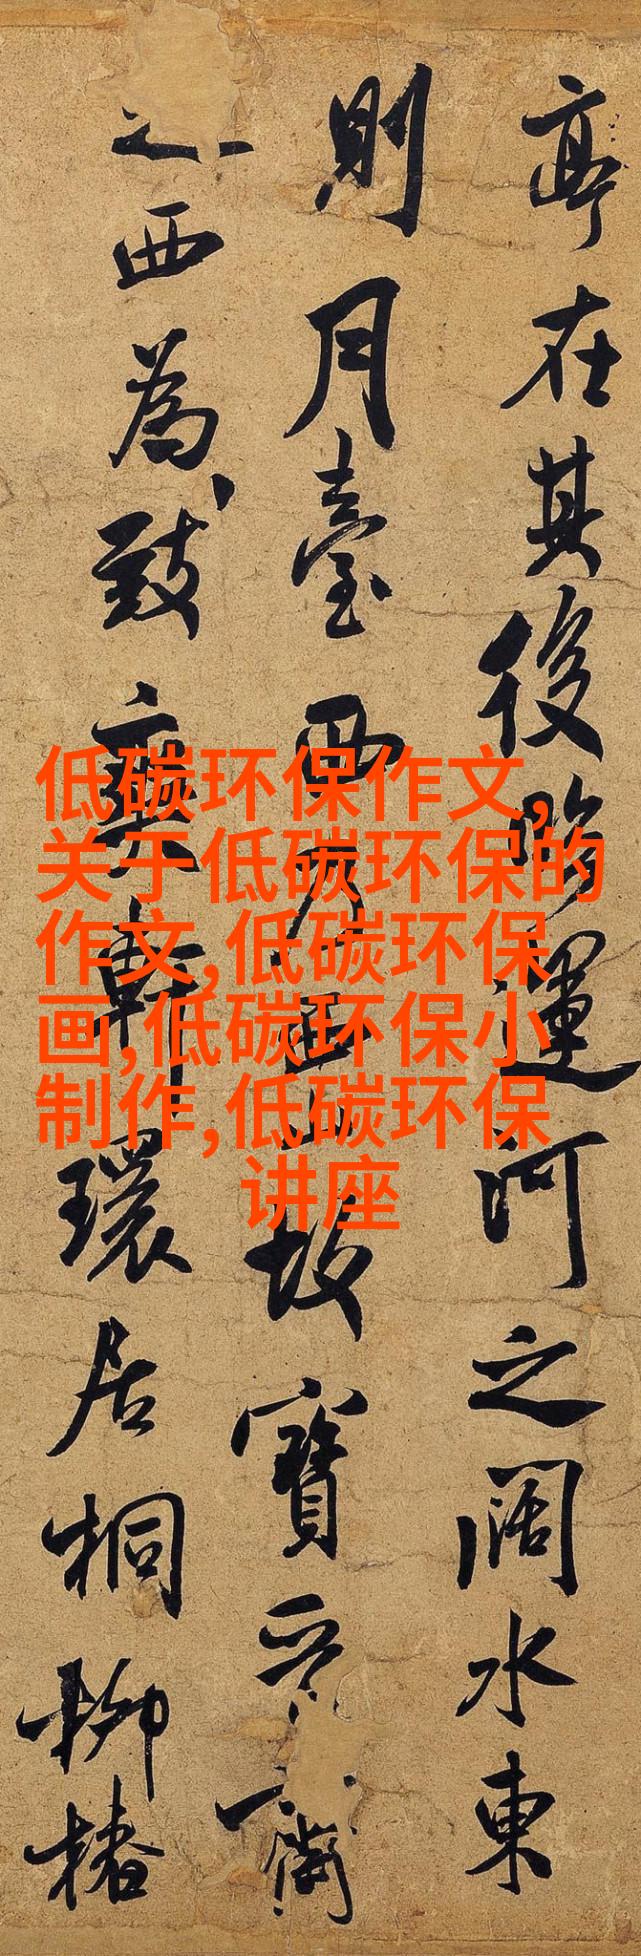 亭在其後臨運河之闊水東
則月臺西乃西山故寶晉齋
之西為致爽軒環居桐柳椿
低碳环保作文,
关于低碳环保的
作文,低碳环保
画,低碳环保小
制作,低碳环保
讲座